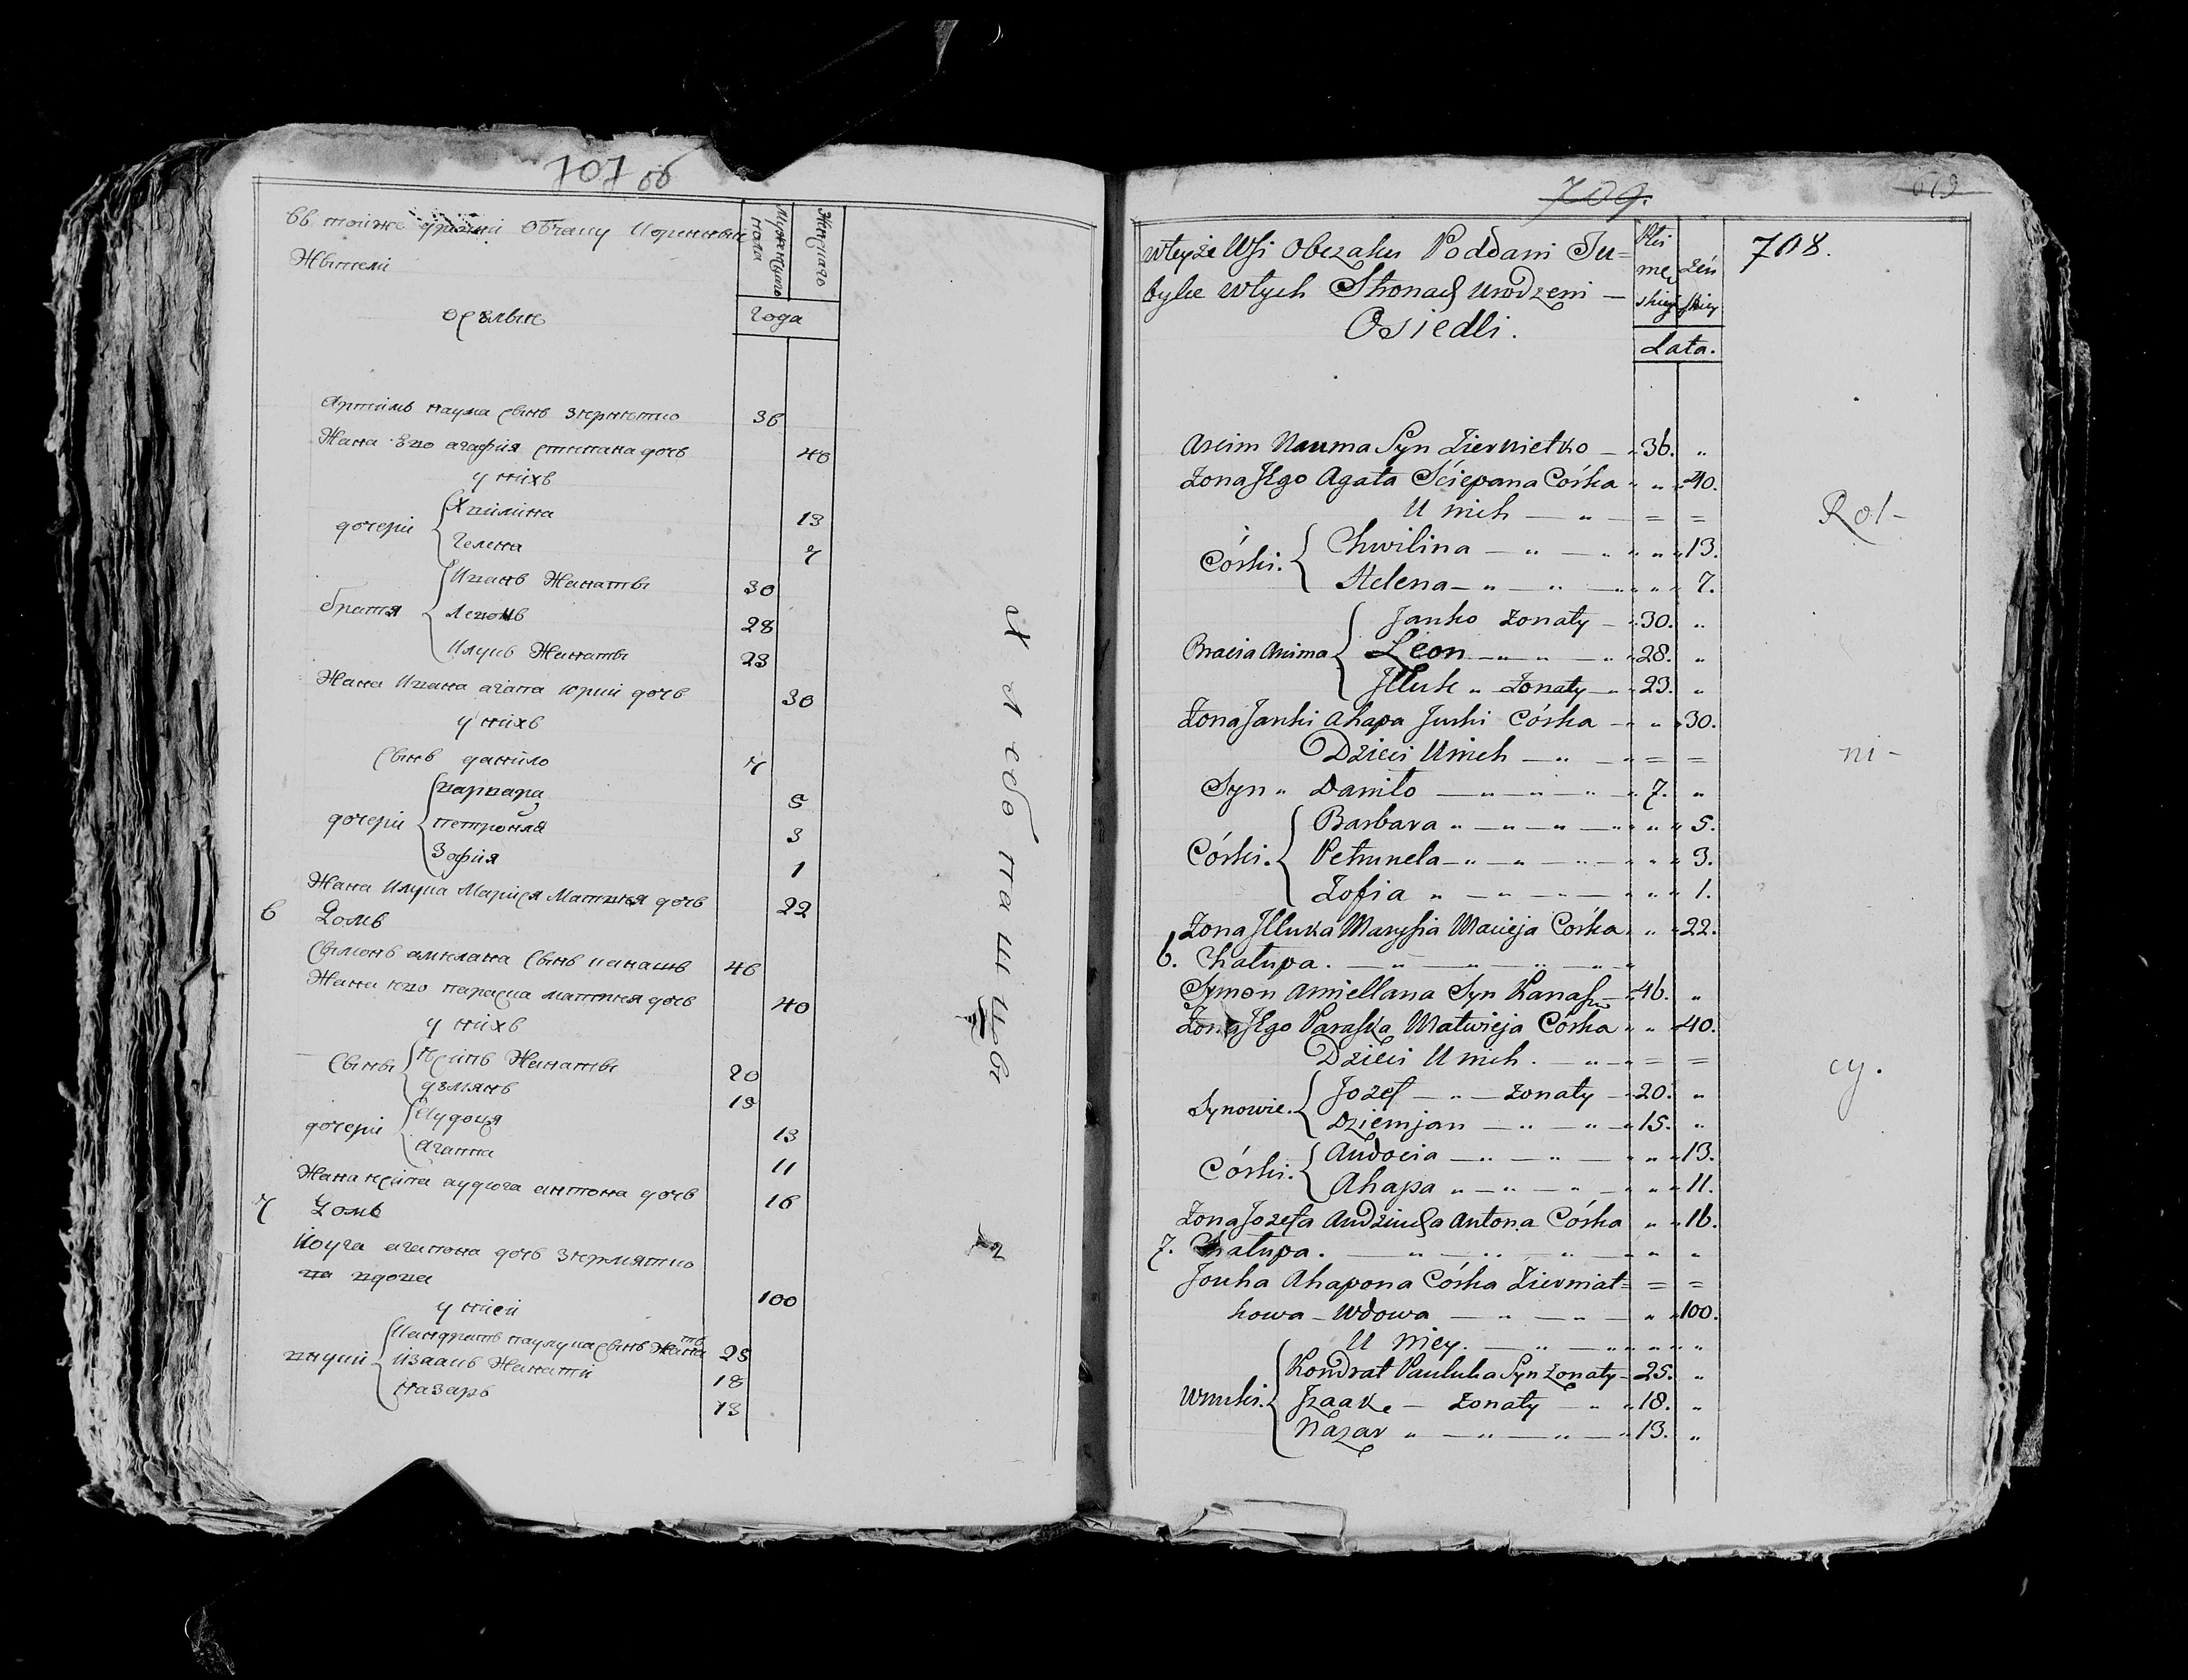 707 об
въ тойже Обчасу
Жытели
Мужескаго пола
Женскаго
оселые
года
Артимъ наума сынъ 36
Жена Его агафия стипана дочь 40
у нихъ
дочери
Хвилина 13
Гелена 7
братя
Иванъ Женаты 30
Леонъ 28
Илукъ Женаты 23
Жена Ивана агапа юрки дочь 30
у нихъ
сынъ данило 7
дочери
варвара 5
петронля 3
Зофия 1
Жена илука Марися Матвея дочь 22
6 Домъ
Сымонъ амиляна сынъ канашъ 46
Жена его параска матвея дочь 40
у нихъ
сыны
Женаты 20
дземянъ 15
дочери
аудоця 13
агапа 11
Жена аудюга антона дочь 16
7 Домъ
агапона дочь
вдова 100
у ней
внуки
Кандратъ паулука сынъ Женаты 25
изаакъ Женати 18
назаръ 13
хлебопашцовъ
709.
619
708.
wteyże Wsi Obczaku Poddani Tu-
bylce wtych Stronach Urodzeni —
Osiedli.
Płci
męskiey
żeńskiey
Lata.
Arcim Nauma Syn Ziernietko — 36. "
Żona Jego Agata Ściepana Córka " " 40.
U nich — " — = =
Córki.
Chwilina — " — " " " 13.
Helena — " — " — " " 7.
Bracia Arcima
Janko żonaty — 30. "
Leon — " " — " 28. "
Jlluk " Żonaty — " 23. "
Żona Janki Ahapa Jurki Córka — " " 30.
Dzieci Unich — " — = =
Syn " Daniło — " — " — " 7. "
Córki.
Barbara " — " — " — " " 5.
Petrunela — " — " — " — " " 3.
Zofia " — " — " — " " 1.
Żona Jlluka Marysia Macieja Córka " " 22.
6. Chałupa. — " — " — " — "
Symon Amiellana Syn Kanasz — 46. "
Żona Jego Paraska Matwieja Córka " " 40.
Dzieci U nich. — " — = =
Synowie.
Jozef — " — żonaty — 20. "
Dziemjan — " — " — 15. "
Córki.
Audocia — " — " — " " 13.
Ahapa " — " — " — " " 11.
Żona Jozefa Audziucha Antona Córka " " 16.
7. Chałupa. — " — " — " — " "
Jouha Ahapona Córka Zierniat= = =
kowa — Wdowa — " — " — " 100.
U niey. — " — " " "
Wnuki.
Kondrat Pauluka Syn żonaty — 25. "
Jzaak — żonaty — " 18. "
Nazar " — " — " — 13. "
Rol-
ni-
cy.